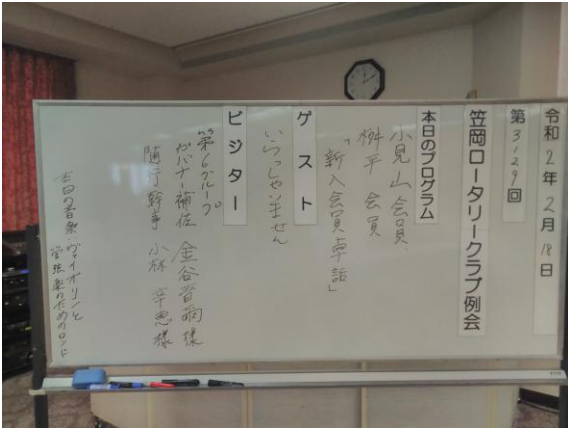 令和2年2月18日
第3129回
笠岡ロータリークラブ例会
本日のプログラム
小見山会員、
桝平 会員
「新入会員卓話」
ゲスト
いらっしゃいません
ビジター
第6グループ
ガバナー補佐 金谷 様
随行幹事 小林 幸恵 様
本日の音楽 ヴァイオリンと
管弦楽のためのロンド